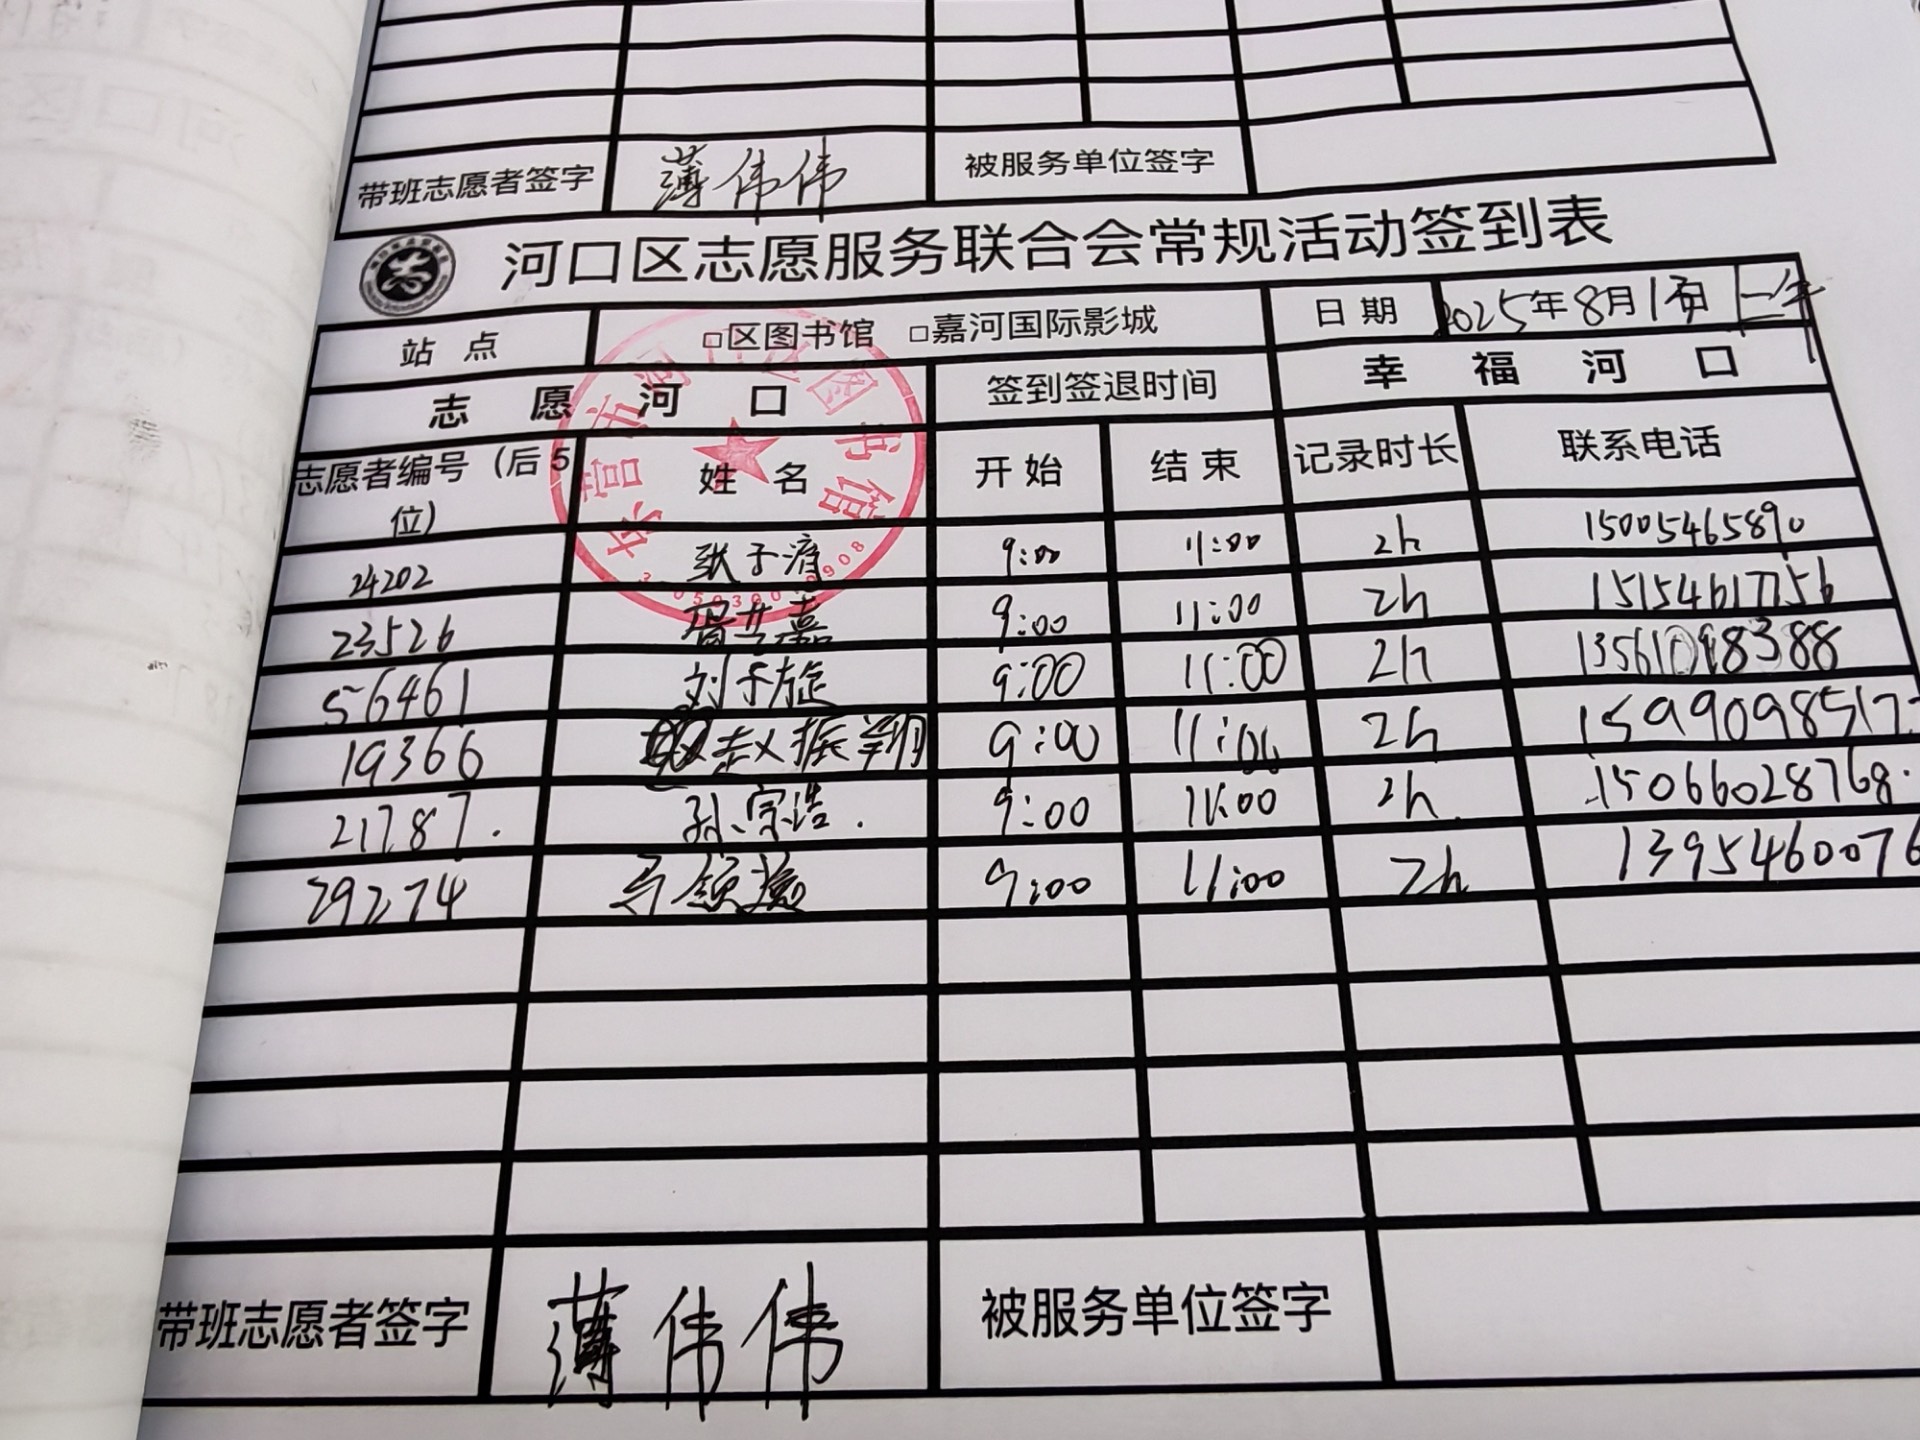 带班志愿者签字 薄伟伟 被服务单位签字
河口区志愿服务联合会常规活动签到表
站 点 □区图书馆 □嘉河国际影城 日 期 2025年8月1日
志 愿 河 口 签到签退时间 幸 福 河 口
志愿者编号（后5位） 姓 名 开 始 结 束 记录时长 联系电话
24202 张于湑 9:00 11:00 2h 15005465890
23526 9:00 11:00 2h 15154617756
56461 刘予旋 9:00 11:00 2h 13561098388
19366 赵振翔 9:00 11:00 2h 1599098517
21787. 孙宗浩. 9:00 11:00 2h. 15066028768.
29274 9:00 11:00 2h 1395460076
带班志愿者签字 薄伟伟 被服务单位签字
东营市河口区图书馆